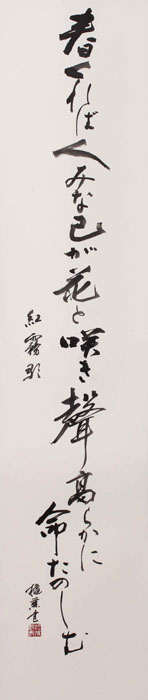 春くれば人みな己が花と咲き聲高らかに
命たのしむ
紅霧影